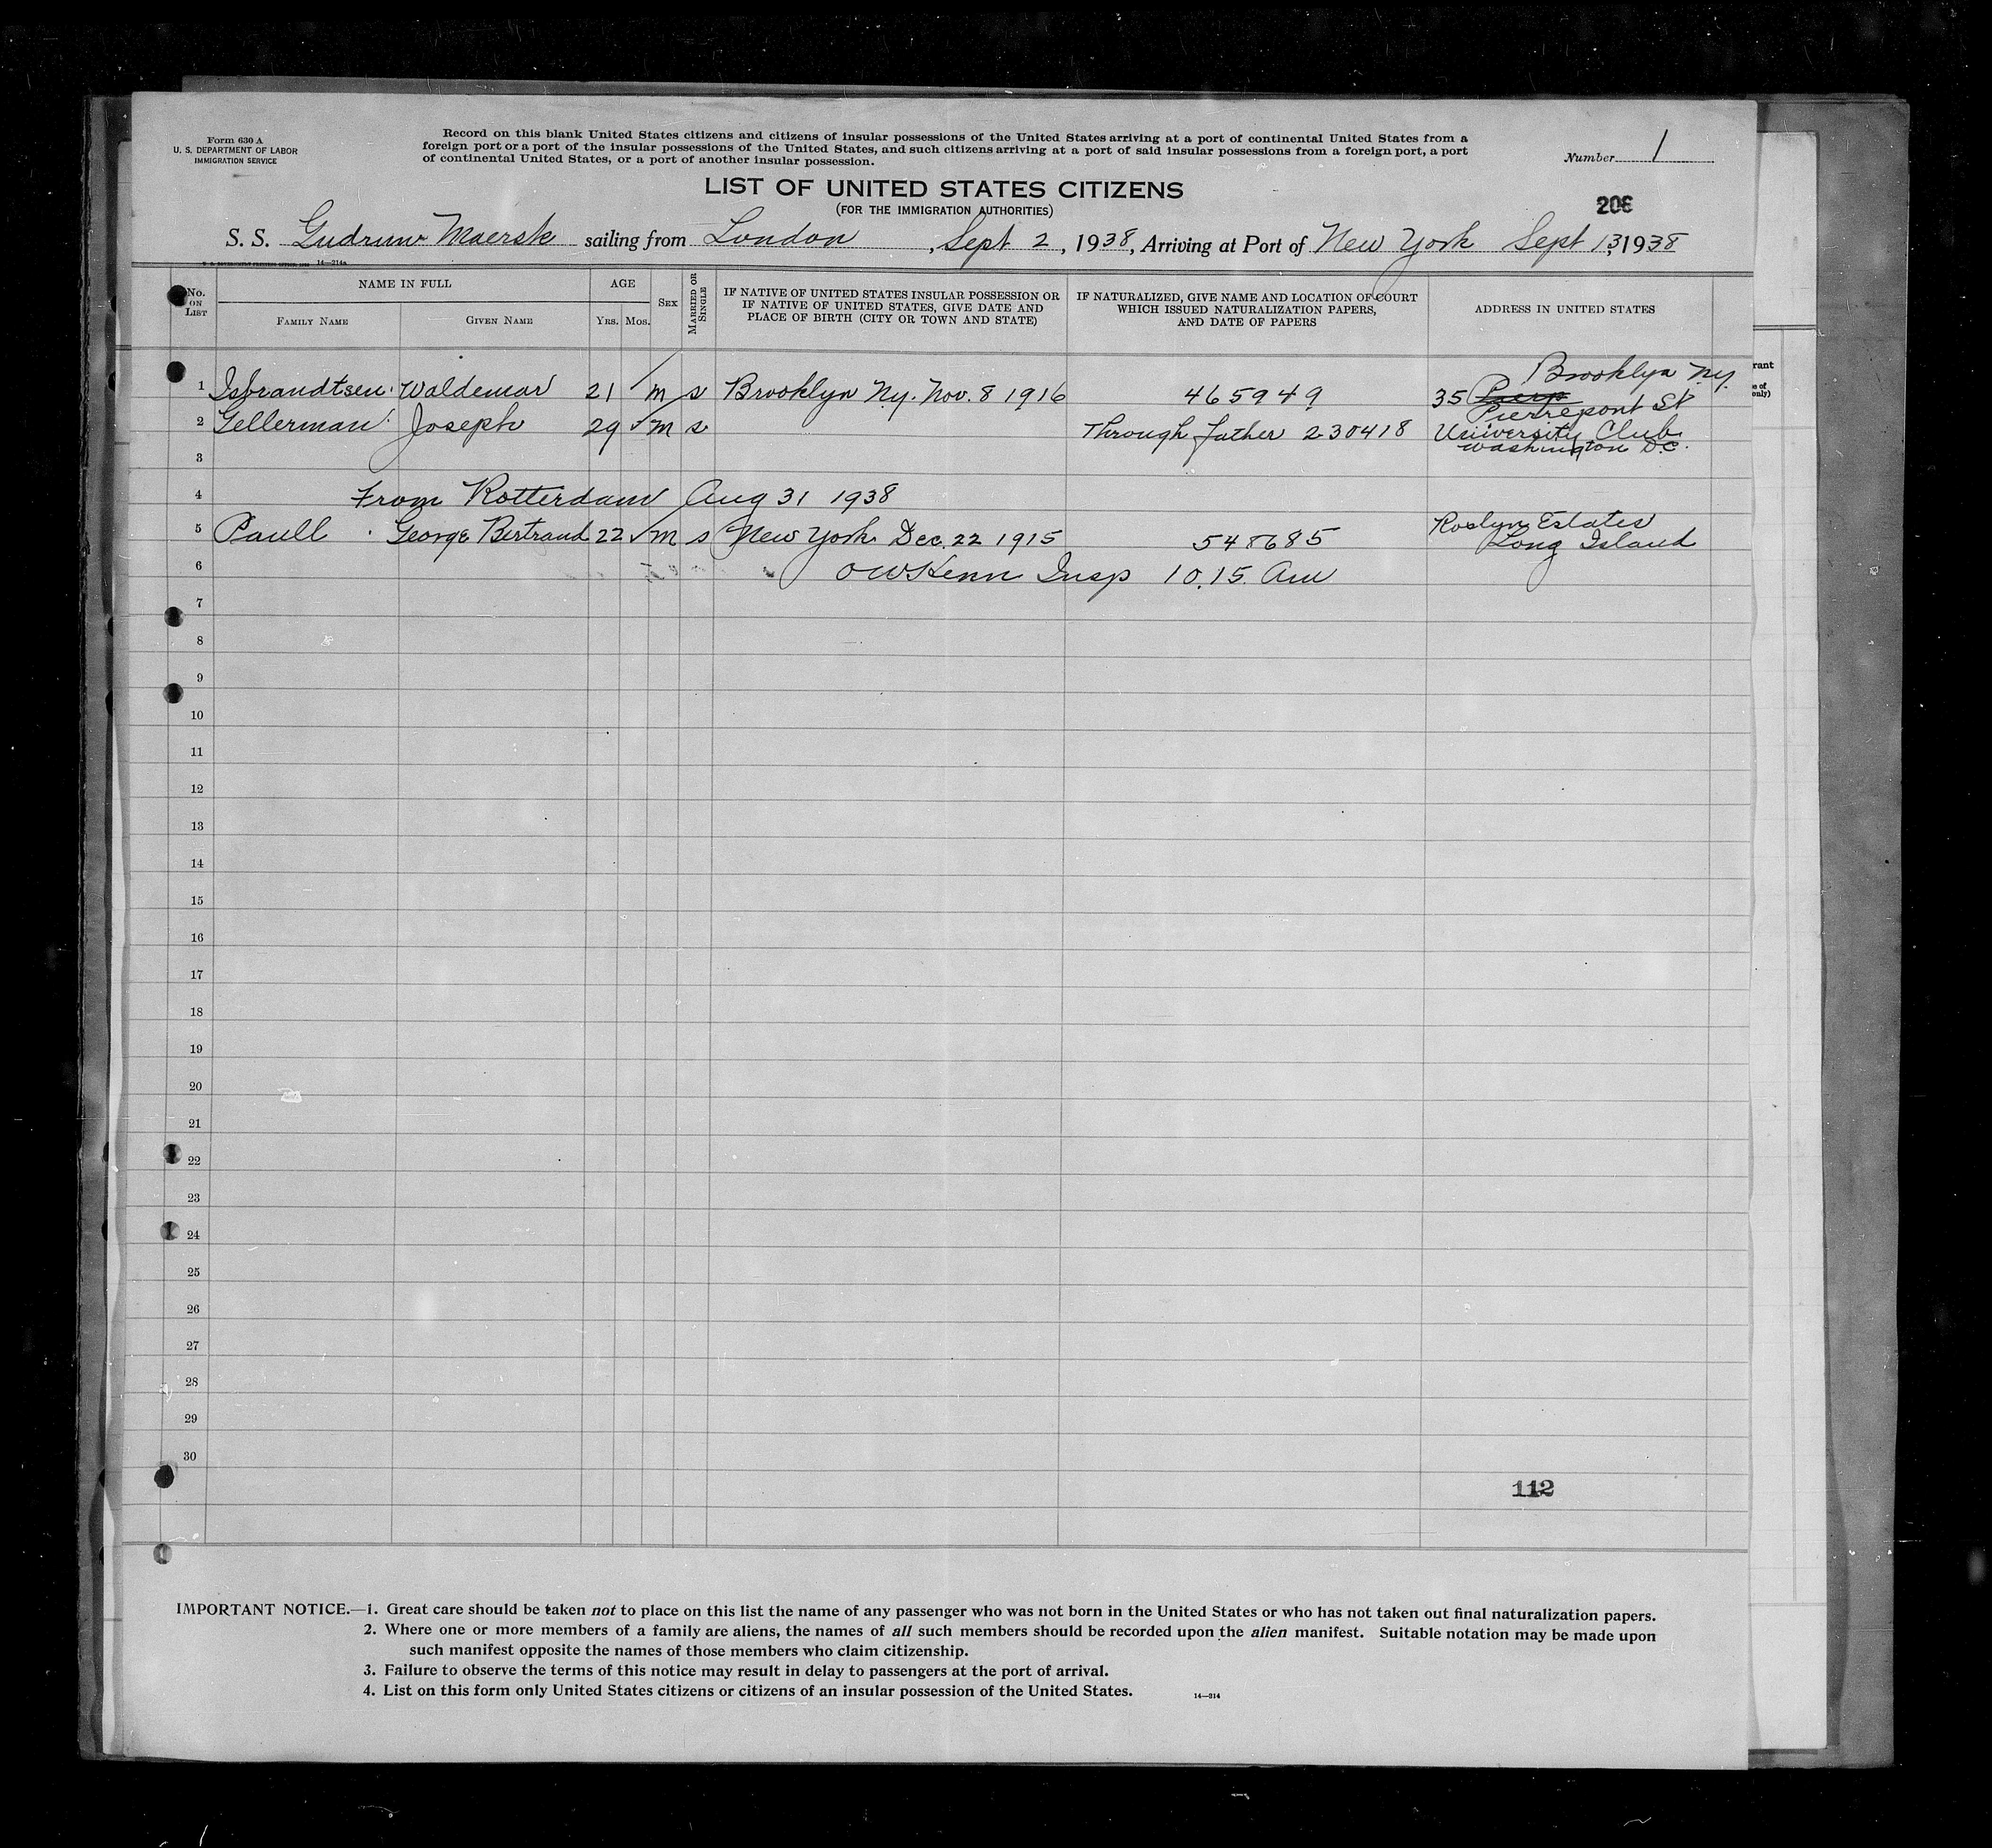 Form 630 A
U. S. DEPARTMENT OF LABOR
IMMIGRATION SERVICE
Record on this blank United States citizens and citizens of insular possessions of the United States arriving at a port of continental United States from a
foreign port or a port of the insular possessions of the United States, and such citizens arriving at a port of said insular possessions from a foreign port, a port
of continental United States, or a port of another insular possession.
Number 1
LIST OF UNITED STATES CITIZENS
(FOR THE IMMIGRATION AUTHORITIES)
206
S. S. Gudrun Maersk sailing from London, Sept 2, 1938, Arriving at Port of New York Sept 13, 1938
14—214a
No. ON LIST
NAME IN FULL
FAMILY NAME
GIVEN NAME
AGE
YRS. MOS.
SEX
MARRIED OR SINGLE
IF NATIVE OF UNITED STATES INSULAR POSSESSION OR
IF NATIVE OF UNITED STATES, GIVE DATE AND
PLACE OF BIRTH (CITY OR TOWN AND STATE)
IF NATURALIZED, GIVE NAME AND LOCATION OF COURT
WHICH ISSUED NATURALIZATION PAPERS,
AND DATE OF PAPERS
ADDRESS IN UNITED STATES
Brooklyn N.Y.
1 Isbrandtsen Waldemar 21 m s Brooklyn N.Y. Nov. 8 1916 465949 35
Pierrepont St
2 Gellerman Joseph 29 m s Through father 230418 University Club
Washington D.C.
3
4 From Rotterdam Aug 31 1938
5 Paull George Bertrand 22 m s New York Dec. 22 1915 548685 Roslyn Estates
Long Island
6 Insp 10.15 Am
7
8
9
10
11
12
13
14
15
16
17
18
19
20
21
22
23
24
25
26
27
28
29
30
112
IMPORTANT NOTICE.—1. Great care should be taken not to place on this list the name of any passenger who was not born in the United States or who has not taken out final naturalization papers.
2. Where one or more members of a family are aliens, the names of all such members should be recorded upon the alien manifest. Suitable notation may be made upon
such manifest opposite the names of those members who claim citizenship.
3. Failure to observe the terms of this notice may result in delay to passengers at the port of arrival.
4. List on this form only United States citizens or citizens of an insular possession of the United States.
14—214